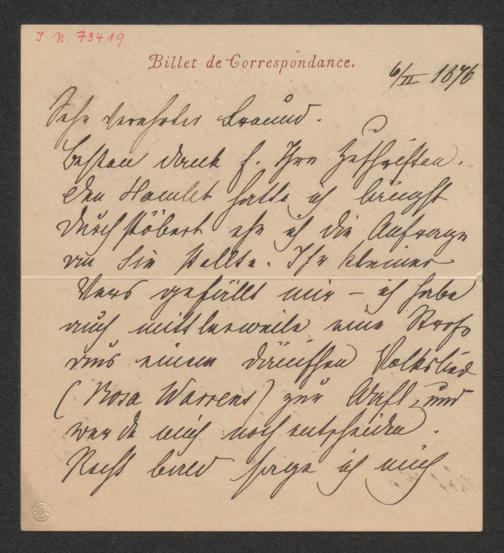 I. N. 73419
Billet de Correspondance.
6/II 1876
Sehr verehrter Freund.
Besten Dank f. Ihre Zuschriften.
Den Hamlet hatte ich längst
durchstöbert ehe ich die Anfrage
an Sie stellte. Ihr kleiner
Vers gefällt mir – ich habe
auch mittlerweile eine Strofe
aus einem dänischen Volkslied
(Rosa Warrens) zur Wahl, und
werde mich noch entscheiden.
Recht bald sage ich mich